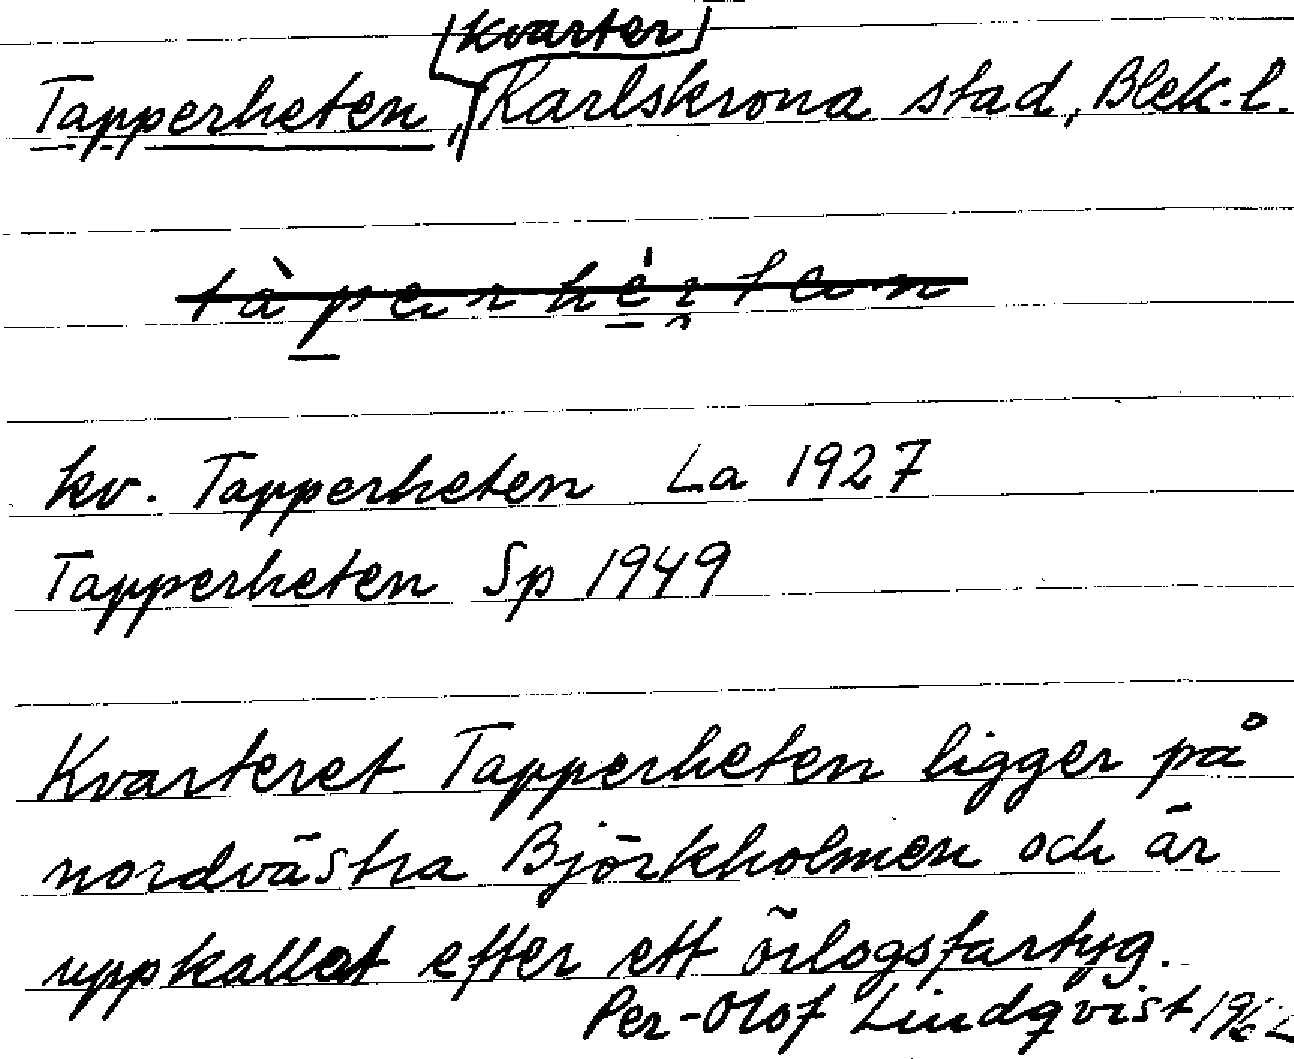 Tapperheten, [kvarter] Karlskrona stad, Blek. l.
kv. Tapperheten La 1927
Tapperheten Sp 1949
Kvarteret Tapperheten ligger på
nordvästra Björkholmen och är
uppkallat efter ett örlogsfartyg.
Per-Olof Lindqvist 1962